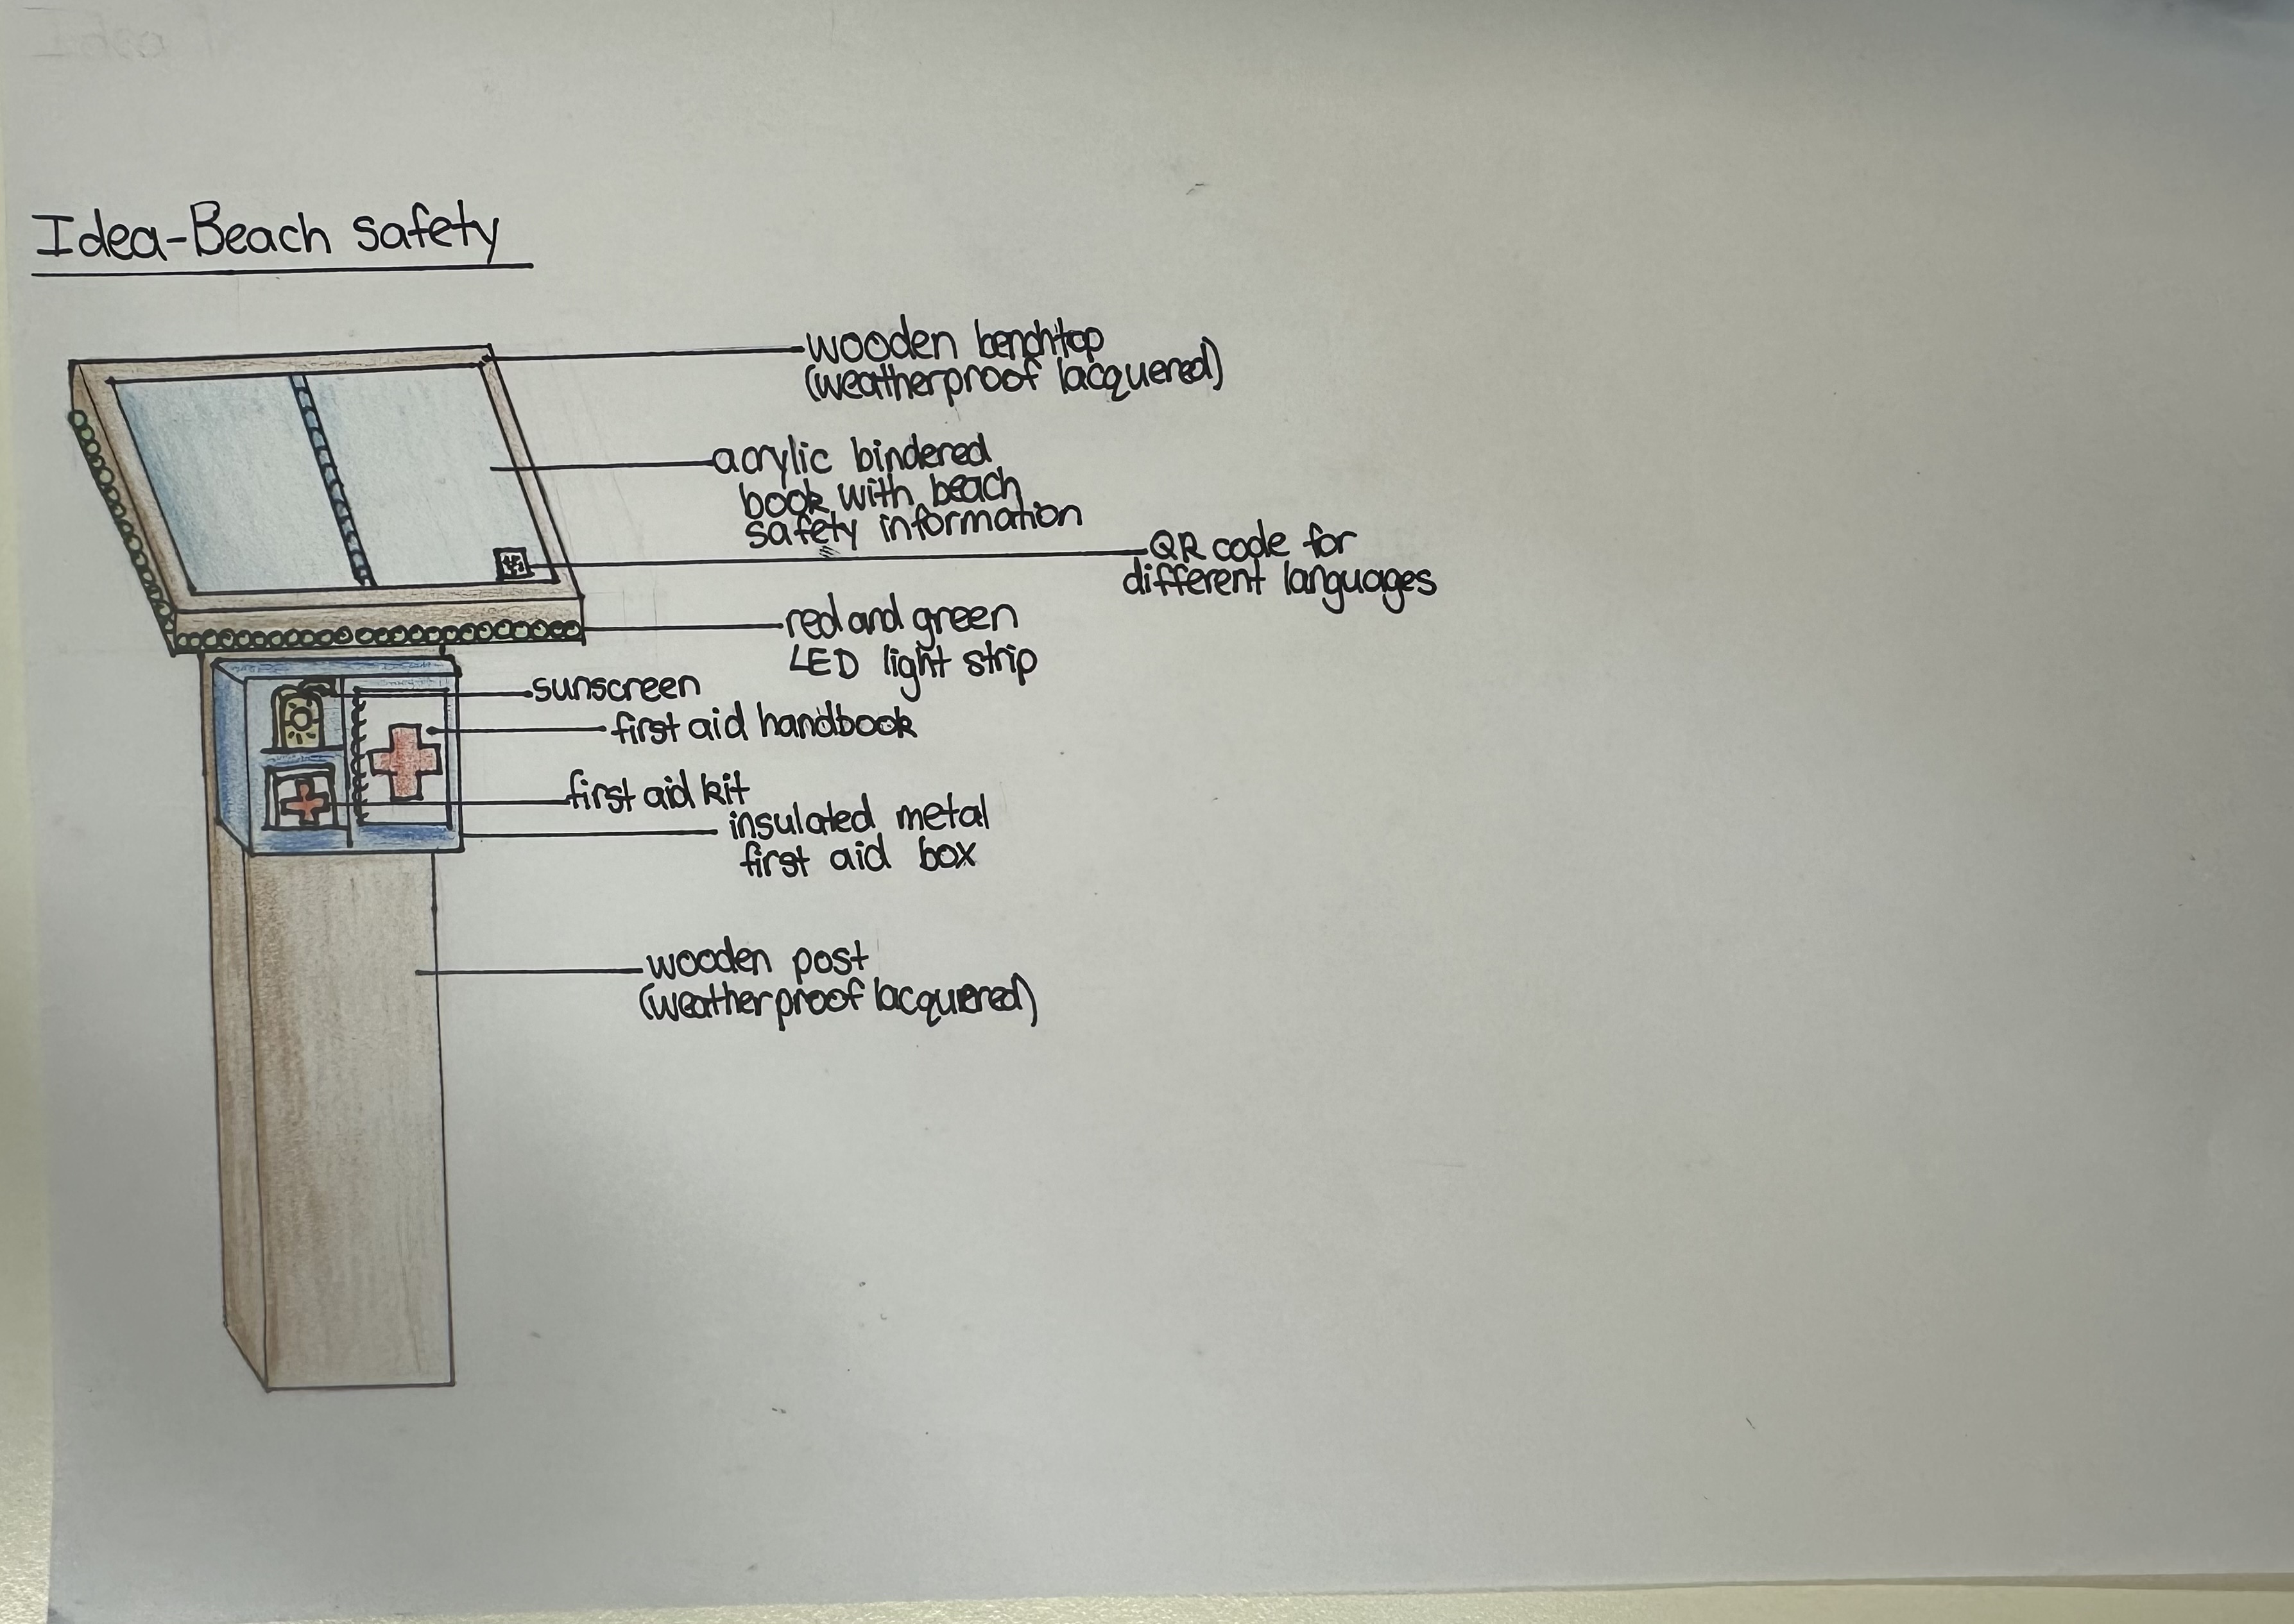 Idea-Beach safety
wooden benchtop
(weatherproof lacquered)
acrylic bindered
book with beach
safety information
QR code for
different languages
red and green
LED light strip
sunscreen
first aid handbook
first aid kit
insulated metal
first aid box
wooden post
(weatherproof lacquered)